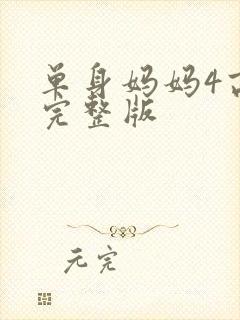 单身妈妈4高
完整版
元完